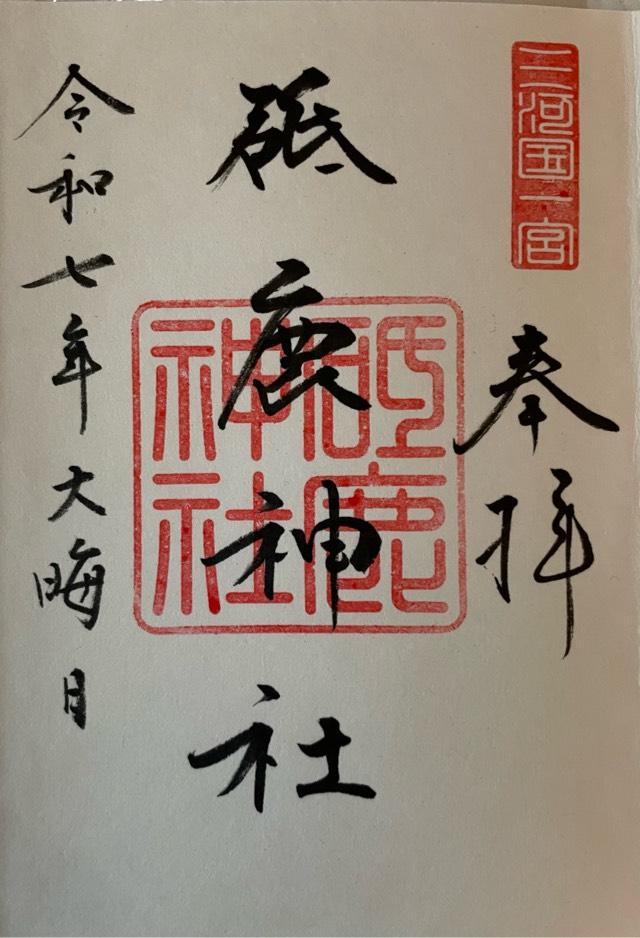 三河国一宮
奉拝
砥鹿神社
砥鹿神社
令和七年大晦日